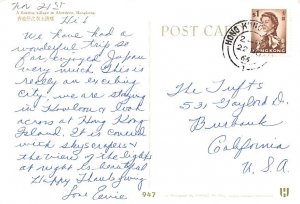 Nov 21st
A floating village in Aberdeen, Hongkong.
Hi!
We have had a
wonderful trip so
far, enjoyed Japan
very much. This is
really an exciting
city, we are staying
in Kowloon & look
across at Hong Kong
Island. It is covered
with skyscrapers &
the view of the lights
at night is beautiful
Happy Thanksgiving
Love
947
POST CARD
HONG KONG
HONG KONG
The Tufts
531 Gaylord Dr.
Burbank
California
U.S.A.